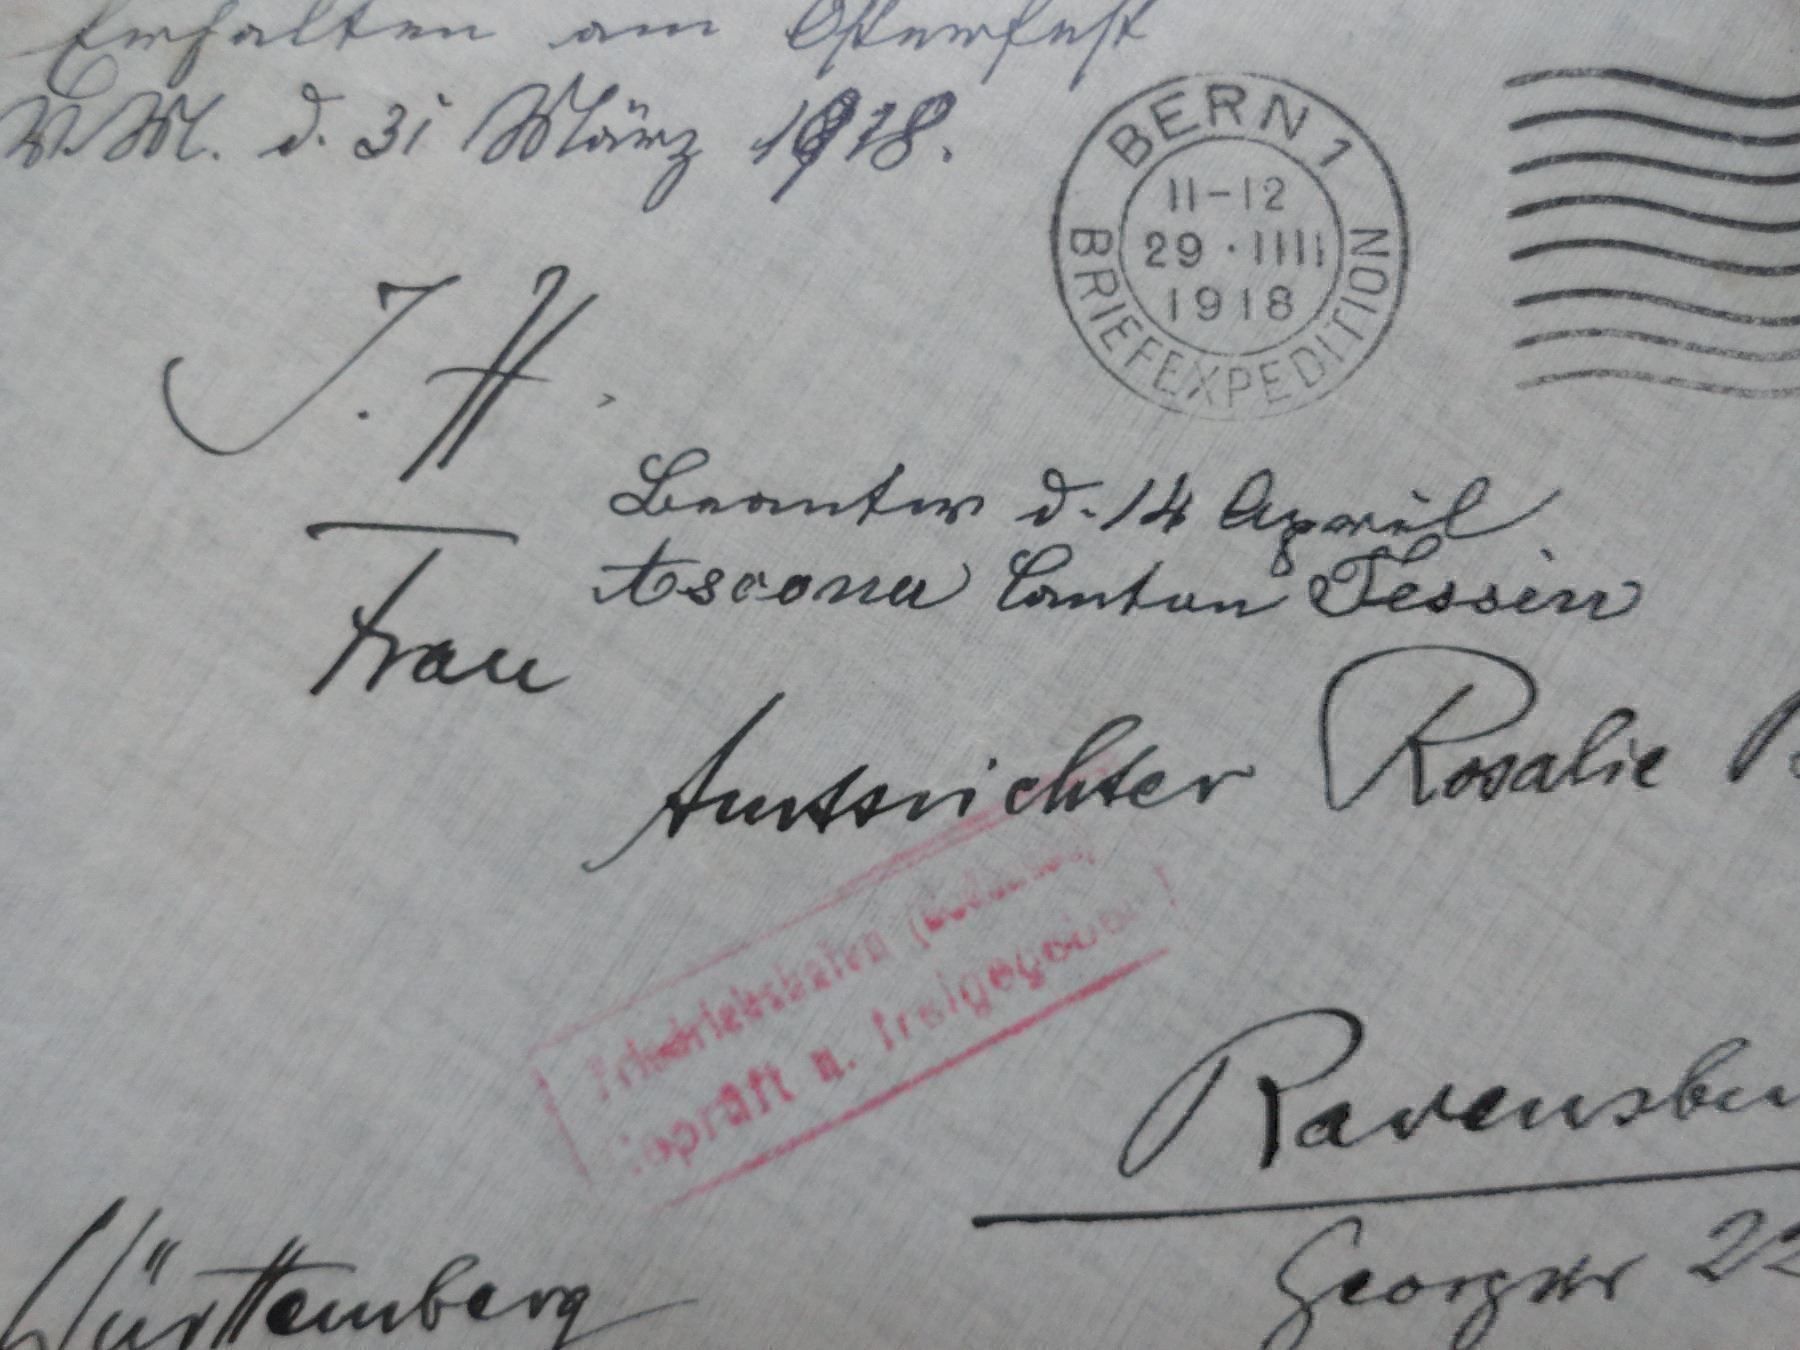 Erhalten am Osterfest
V.M. d. 31 März 1918.
BERN 1
11-12
29·IIII
1918
BRIEFEXPEDITION
J. H.
Beantw d. 14 April
Ascona Canton Tessin
Frau
Amtsrichter Rosalie
Friedrichshafen (Bodensee)
Geprüft u. freigegeben
Ravensbu
Georgstr 22
Württemberg